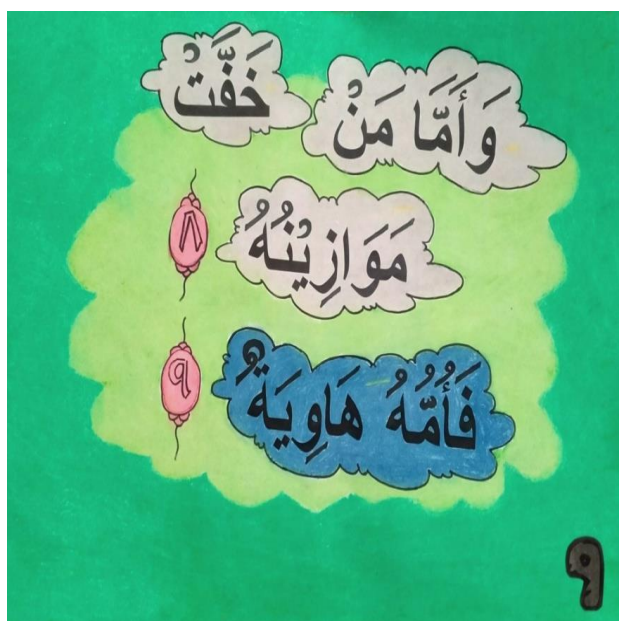 وَأَمَّا مَنْ خَفَّتْ
مَوَازِيْنُهُ ٨
فَأُمُّهُ هَاوِيَةٌ ٩
٩